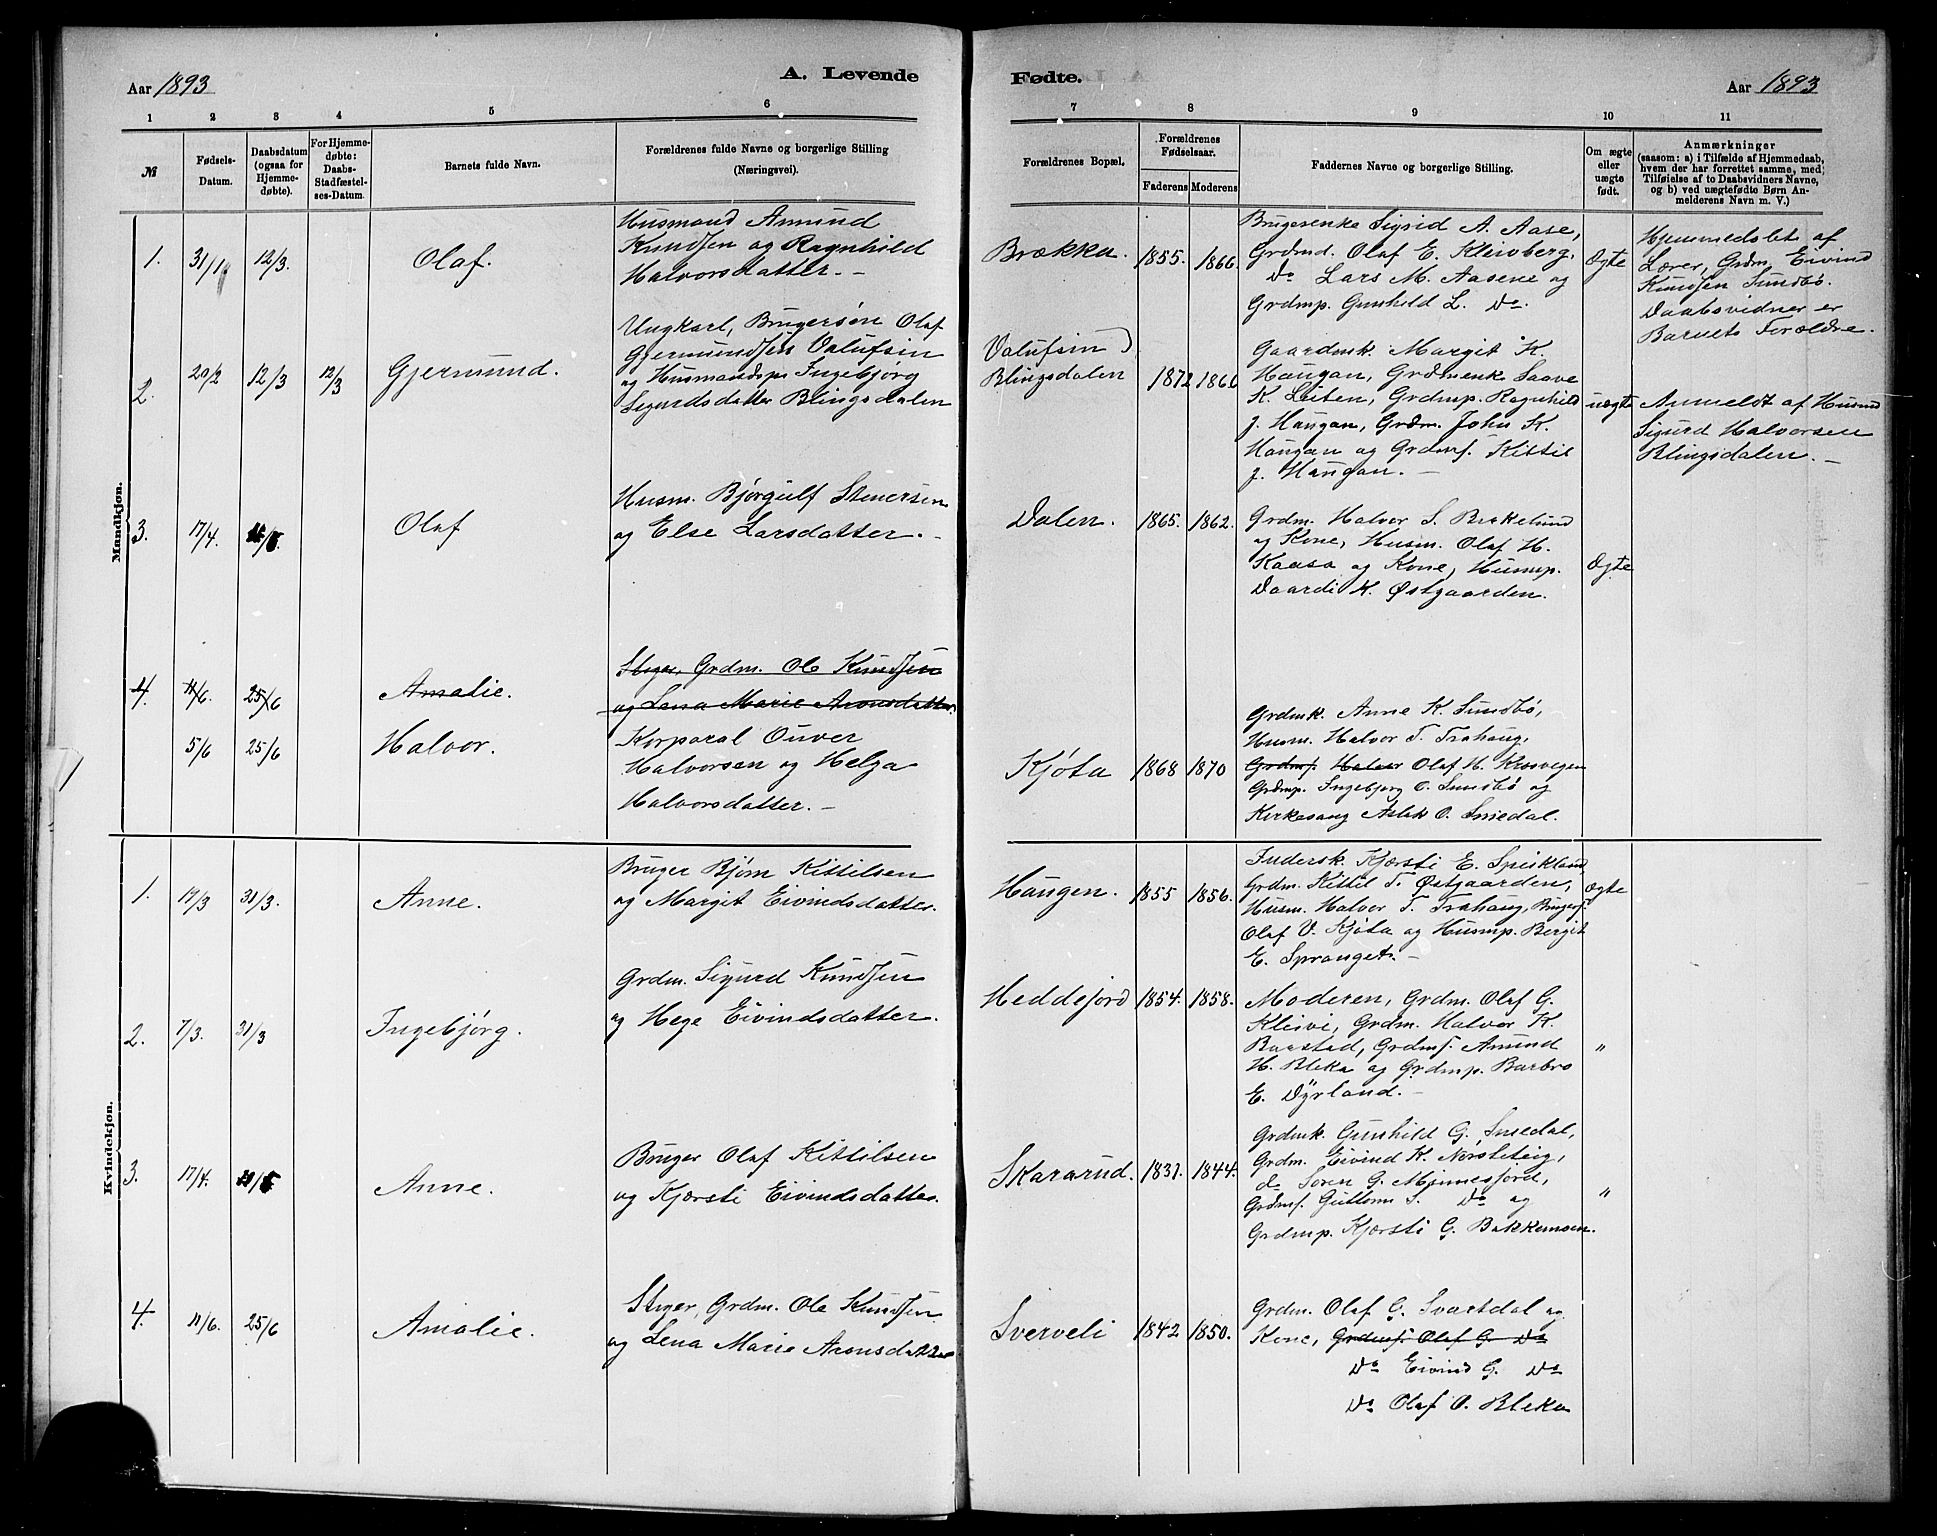 Aar 1893
A. Levende
Fødte.
Aar 1893
1 2 3 4 5 6 7 8 9 10 11
№
Fødsels-
Datum.
Daabsdatum
(ogsaa for
Hjemme-
døbte).
For Hjemme-
døbte:
Daabs-
Stadfæstel-
ses-Datum.
Barnets fulde Navn.
Forældrenes fulde Navne og borgerlige Stilling
(Næringsvei).
Forældrenes Bopæl.
Forældrenes
Fødselsaar.
Faderens Moderens
Faddernes Navne og borgerlige Stilling.
Om ægte
eller
uægte
født.
Anmærkninger
(saasom: a) i Tilfælde af Hjemmedaab,
hvem der har forrettet samme, med
Tilføielse af to Daabsvidners Navne,
og b) ved uægtefødte Børn An-
melderens Navn m. V.)
Mandkjøn.
1. 31/1 12/3. Olaf.
Husmand Amund
Knudsen og Ragnhild
Halvorsdatter. -
Brække. 1855. 1866.
Brugerenke Sigrid A. Aase,
Grdmd. Olaf E. Kleivberg,
Do Lars M. Aasene og
Grdmp. Gunhild L. Do.
Ægte
Hjemmedøbt af
Lærer, Grdm. Eivind
Knudsen Sundbø.
Daabsvidner er
Barnets Forældre.
2. 20/2 12/3 12/3 Gjermund.
Ungkarl, Brugersøn Olaf
Gjermundsen Valufsin
og Husmandsp. Ingebjørg
Sigurdsdatter Blingsdalen
Valufsin
Blingsdalen 1872 1866
Gaardmk. Margit K.
Haugan, Grdmenke Saave
K. Leiten, Grdmp. Ragnhild
J. Haugan, Grdm. John K.
Haugan og Grdms. Kittil
J. Haugan. -
uægte
Anmeldt af Husmd
Sigurd Halvorsen
Blingsdalen. -
3. 17/4. Olaf
Husm. Bjørgulf Stenersen
og Else Larsdatter. -
Dalen. 1865. 1862.
Grdm. Halvor S. Brekelund
og Kone, Husm. Olaf H.
Kaasa og Kone, Husmp.
Daardi K. Østgaarden.
Ægte
4. 11/6. 25/6 Amalie.
Stiger, Grdm. Ole Knudsen
og Lena Marie Aronsdatter.
5/6 25/6 Halvor.
Korporal Ouver
Halvorsen og Helga
Halvorsdatter. -
Kjøta 1868 1870
Grdmk. Anne K. Sundbø,
Husm. Halvor T. Trahaug,
Grdms. Halvor Olaf H. Krosvegen
Grdmp. Ingebjørg O. Sundbø og
Kirkesang Aslek O. Smedal.
Kvindekjøn.
1. 19/3 31/3. Anne.
Bruger Bjørn Kittilsen
og Margit Eivindsdatter.
Haugen. 1855 1856.
Indersk. Kjersti E. Speikland,
Grdm. Kittil T. Østgaarden,
Husm. Halvor T. Trahaug, Brugers.
Olaf V. Kjøta og Husmp. Bergit
E. Spranget. -
Ægte
2. 7/3. 31/3 Ingebjørg.
Grdm. Sigurd Knudsen
og Hege Eivindsdatter.
Heddejord 1854. 1858.
Moderen, Grdm. Olaf G.
Kleivi, Grdm. Halvor K.
Baastad, Grdms. Amund
H. Bleka og Grdmp. Barbro
E. Dyrland. -
"
3. 17/4. Anne.
Bruger Olaf Kittilsen
og Kjersti Eivindsdatter.
Skararud. 1837. 1844.
Grdmk. Gunhild G. Smedal,
Grdm. Eivind K. Norsteteig,
do Søren G. Minnesjord,
Grdms. Guttorm S. Do og
Grdmp. Kjersti G. Bakkemoen.
"
4. 11/6. 25/6 Amalie.
Stiger, Grdm. Ole Knudsen
og Lena Marie Aronsdatter
Sverveli 1842 1850.
Grdm. Olaf G. Svartdal og
Kone, Grdms. Olaf G. Do
Do Eivind G. Do
Do Olaf O. Bleka